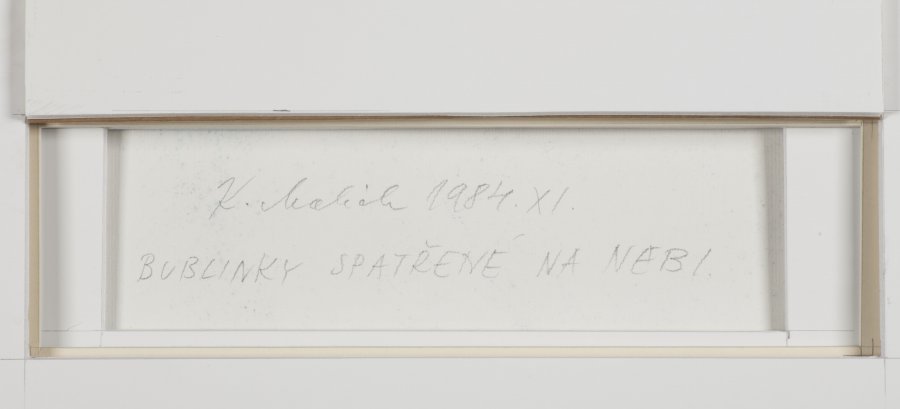 K. Malich 1984. XI.
BUBLINKY SPATŘENÉ NA NEBI.